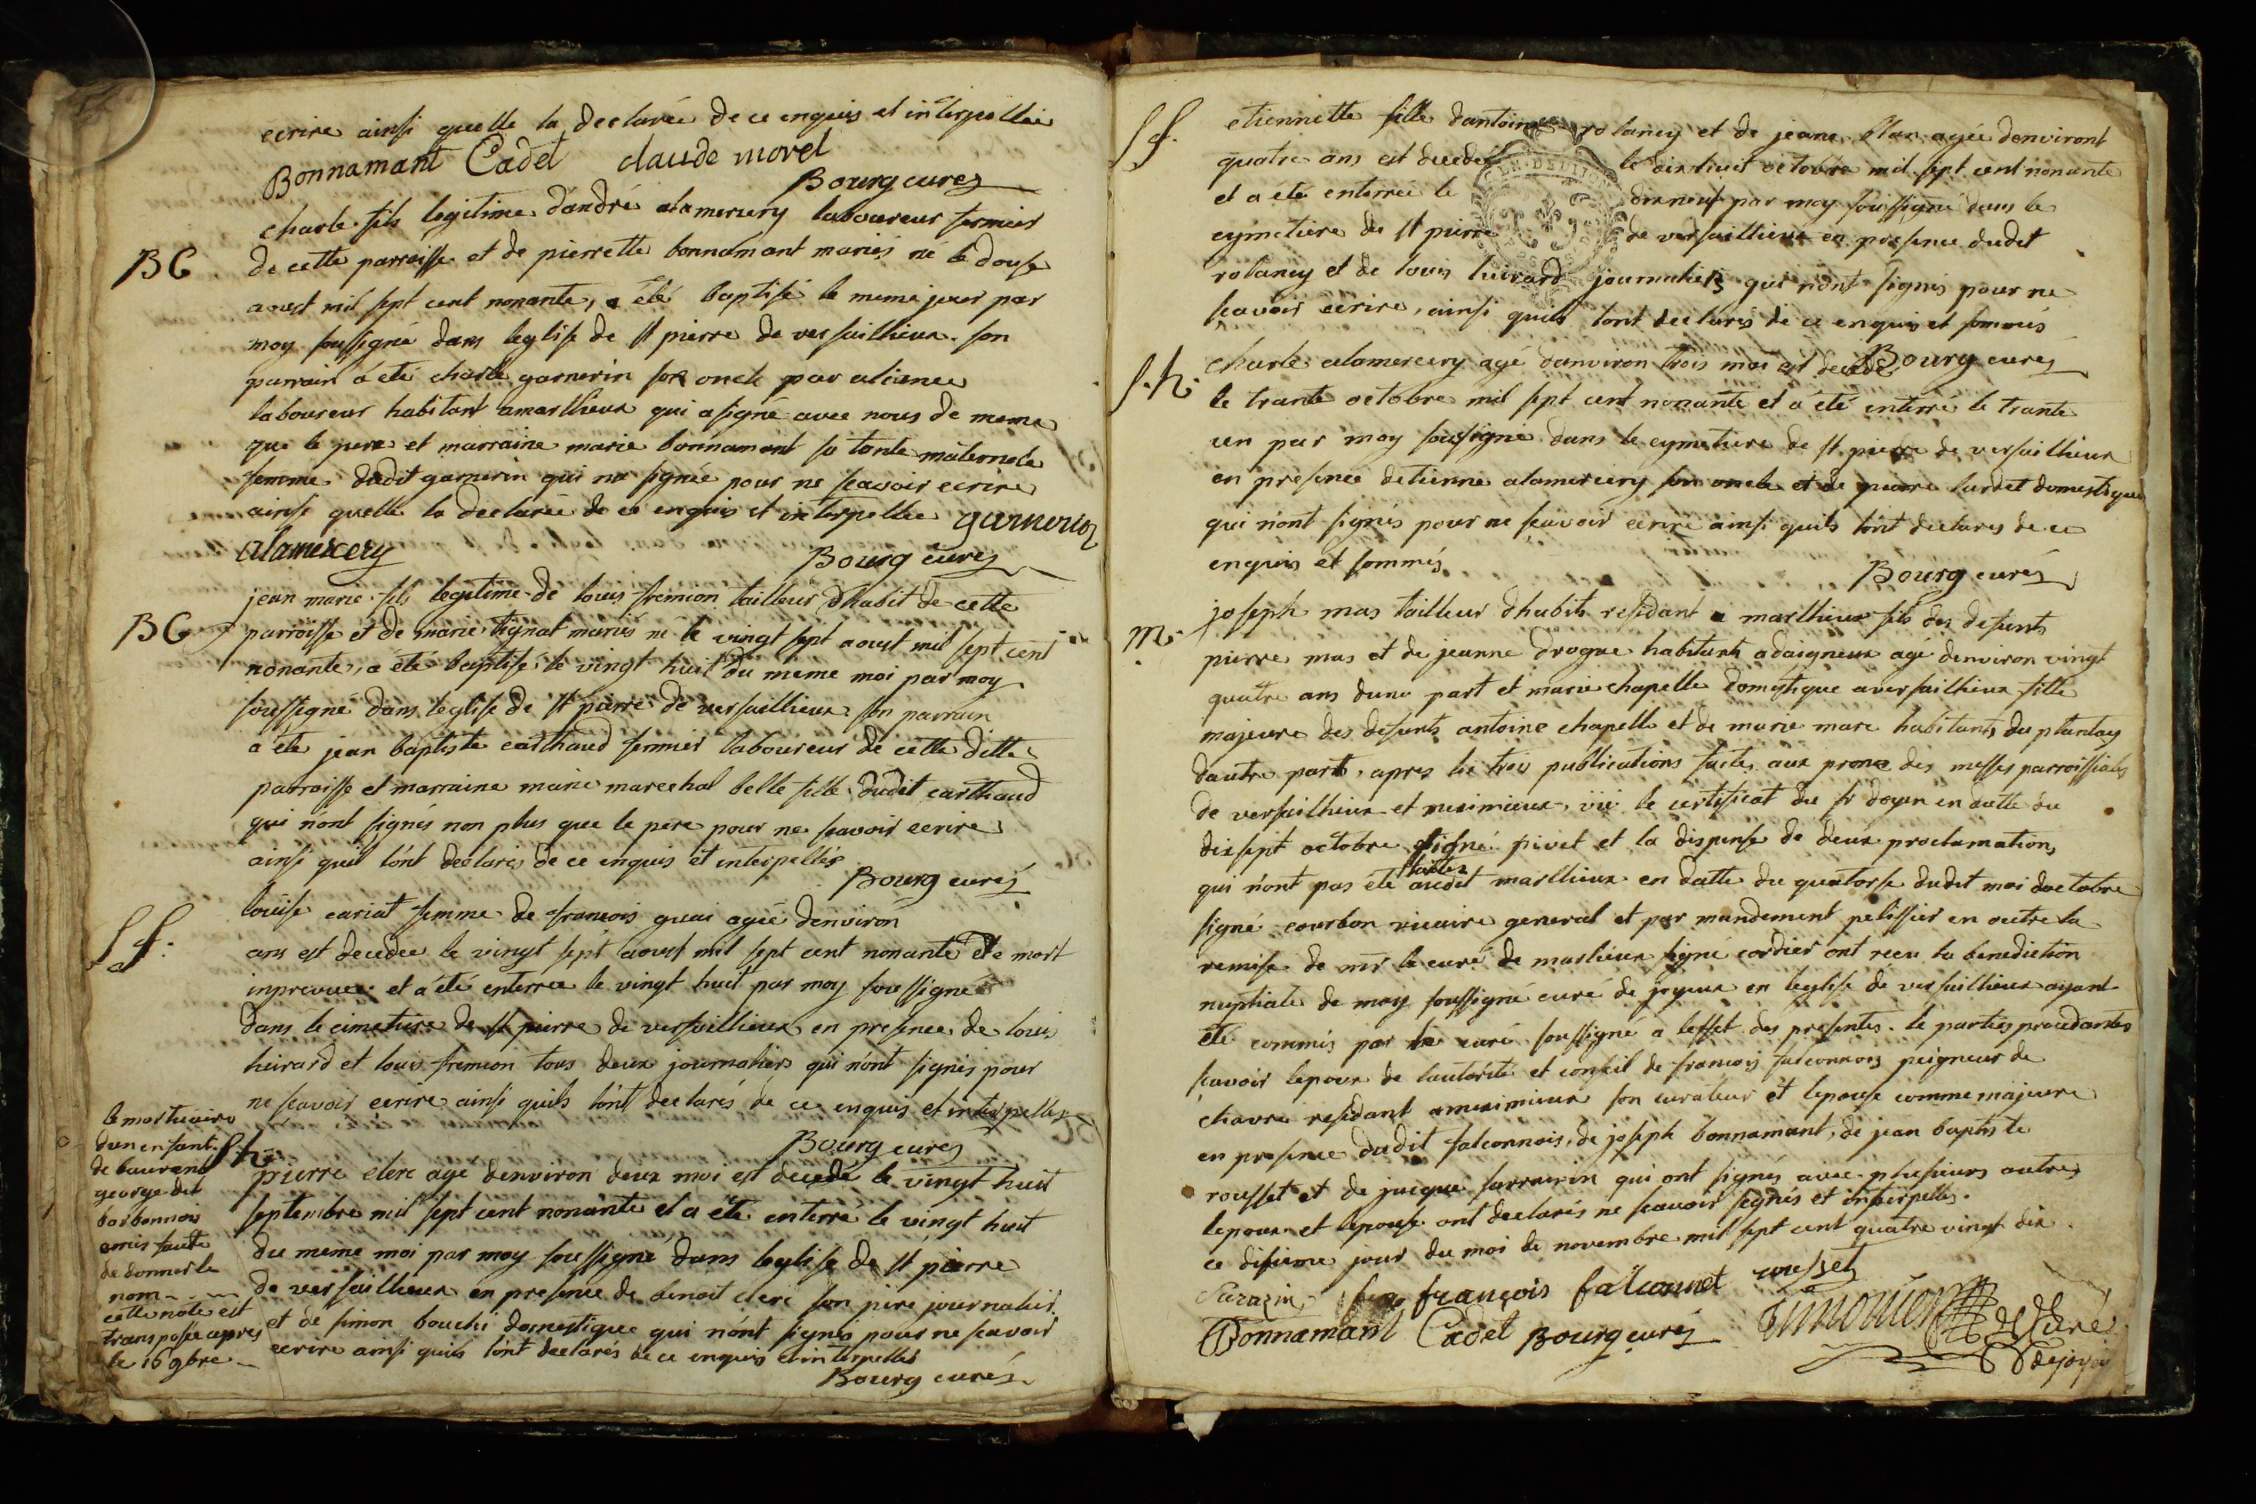 ecrire ainsi quelle la declarée de ce enquis et interpellée
Bonnamant Cadet claude morel
Bourg curés
BG
charle fils legitime dandré alamercery laboureur fermier
de cette parroisse et de pierrette bonnamant mariés né le douse
aoust mil sept cent nonante, a été baptisé le meme jour par
moy soussigné dans leglise de st pierre de versaillieux. son
parrain a été charle garnerin son oncle par aliance
laboureur habitant amarllieux qui a signé avec nous de meme
que le pere et marraine marie bonnamant sa tante maternele
femme dudit garnerin qui na signée pour ne scavoir ecrire
ainsi quelle la declarée de ce enquis et interpellée garnerin
alamercery
Bourg curés
BG
jean marie fils legitime de louis fremion tailleur dhabit de cette
parroisse et de marie tignat mariés né le vingt sept aoust mil sept cent
nonante, a été baptisé le vingt huit du meme moi par moy
soussigné dans leglise de st pierre de versaillieux son parrain
a été jean baptiste carthaud fermier laboureur de cette ditte
parroisse et marraine marie marechal belle fille dudit carthaud
qui nont signés non plus que le pere pour ne scavoir ecrire
ainsi quil lont declarés de ce enquis et interpellés
Bourg curés
Sf.
louise cariat femme de francois guai agée denviron
ans est decedee le vingt sept aoust mil sept cent nonante de mort
inprevuee et a été enterree le vingt huit par moy soussigné
dans le cimetiere de st pierre de versaillieux en presence de louis
huirard et louis fremion tous deux journaliers qui nont signés pour
ne scavoir ecrire ainsi quils lont declarés de ce enquis et interpellés
Bourg curés
le mortuaire
dun enfant
de laurand
george dit
barbannois
omis faute
de donner le
nom
cette note est
transposée apres
le 16 9bre
S.h.
pierre clerc agé denviron deux moi est decedé le vingt huit
septembre mil sept cent nonante et a été enterré le vingt huit
du meme moi par moy soussigné dans leglise de st pierre
de versaillieux en presence de benoit clerc son pere journalier
et de simon bouchi domestique qui nont signés pour ne scavoir
ecrire ainsi quils lont declarés de ce enquis et interpellés
Bourg curés
Sf.
etiennette fille dantoine rolancy et de jeane blan agée denviront
quatre ans est decedée le dixhuit octobre mil sept cent nonante
et a eté enterrée le dixneuf par moy soussigné dans le
cymetiere de st pierre de versaillieux en presence dudit
rolancy et de louis huirard journaliers qui nont signés pour ne
scavoir ecrire, ainsi quils lont declarés de ce enquis et sommés
Bourg curés
S.h.
charle alamercery agé danviron trois moi est decedé
le trante octobre mil sept cent nonante et a été enterré le trante
un par moy soussigné dans le cymetiere de st pierre de versaillieux
en presence detienne alamercery son oncle et de pierre domestique
qui nont signés pour ne scavoir ecrire ainsi quils lont declarés de ce
enquis et sommés
Bourg curés
m.
joseph mas tailleur dhabits residant a marllieux fils des defunts
pierre mas et de jeanne drogue habitants adaigneux agé denviron vingt
quatre ans dune part et marie chapelle domestique a versaillieux fille
majeure des defunts antoine chapelle et de marie mare habitants du plantay
dautre part, apres les trois publications faites aux prone des messes parroissiales
de versaillieux et meximieux, vû le certificat du sr doyen en datte du
dixsept octobre signé pivet et la dispense de deux proclamations
qui nont pas été faites audit marllieux en datte du quatorse dudit moi doctobre
signé courbon vicaire general et par mandement pelissier en outre la
remise de mr le curé de marlieux signé cordier ont recu la benediction
nuptiale de moy soussigné curé de joyeux en leglise de versaillieux ayant
été commis par le curé soussigné a leffet des presentes. le parties procedantes
scavoir lepoux de lautorité et conseil de francois falconnois peigneur de
chavre residant ameximieux son curateur et lepouse comme majeure
en presence dudit falconnois, de joseph bonnamant, de jean baptiste
rousset et de jacque sarravin qui ont signés avec plusieurs autres
lepoux et lepouse ont declarés ne scavoir signés et interpellés.
ce disieme jour du moi de novembre mil sept cent quatre vingt dix
Sarazin françois falconnet rousset
Bonnamant Cadet Bourg curés Simonier curé
de joyeux